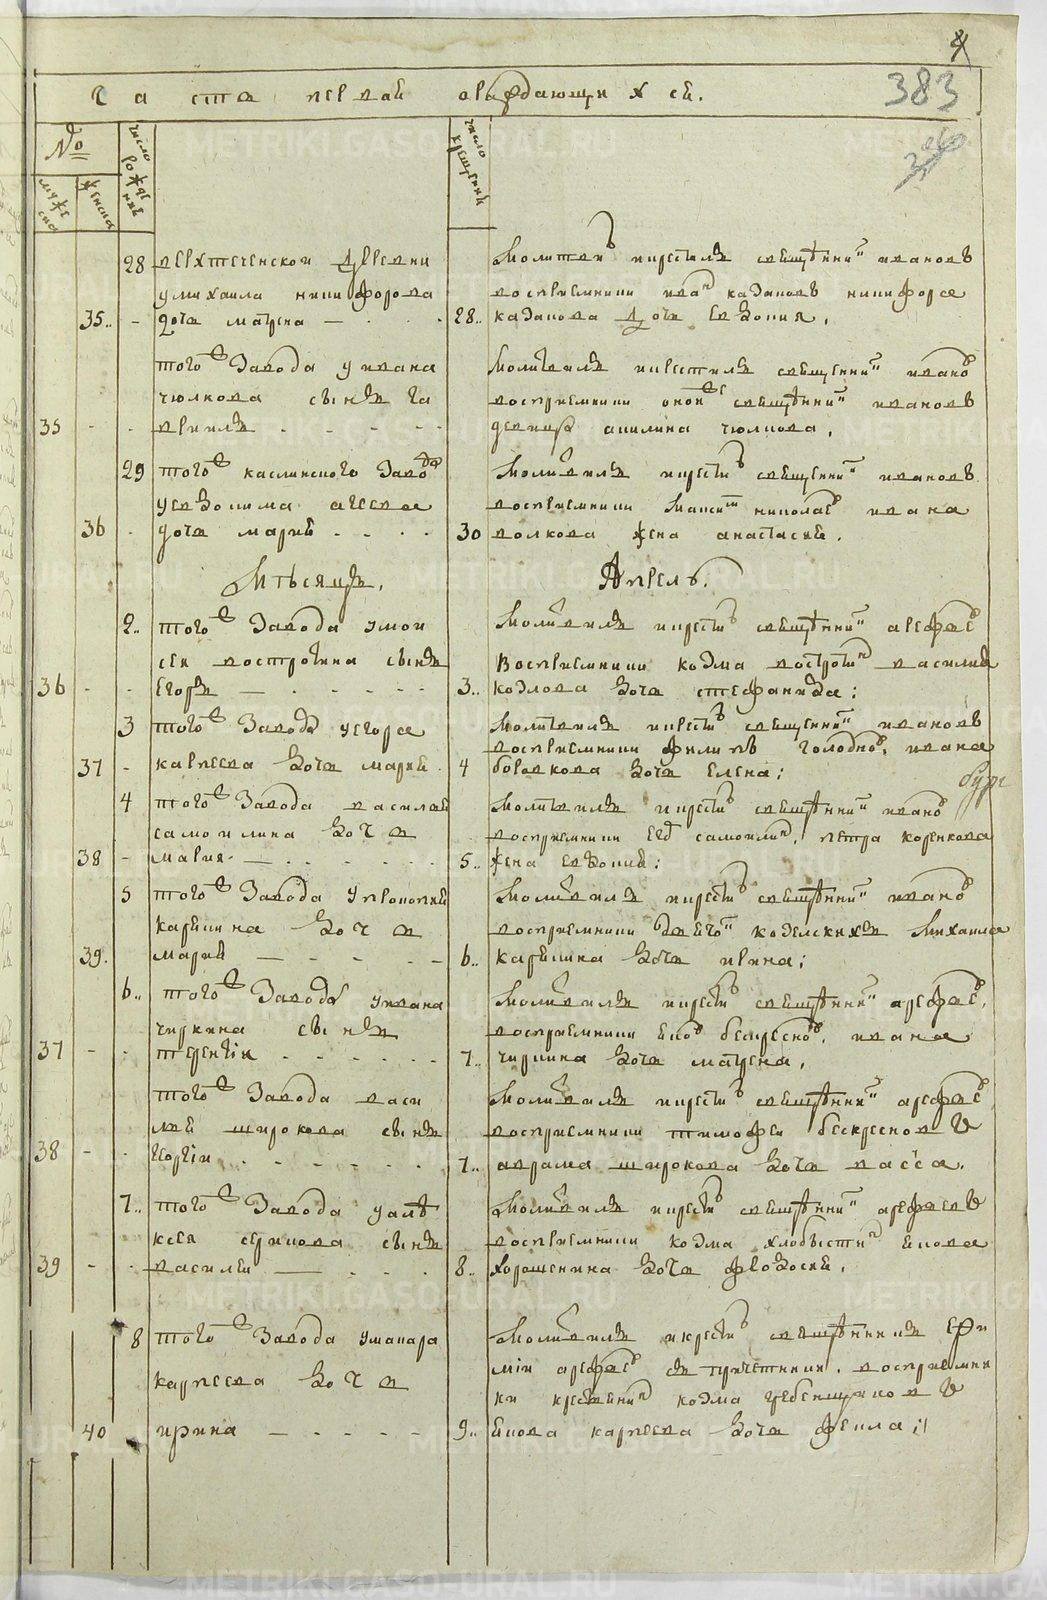 383
Часть первая о раждающихся.
№
число рождения
число крещения
мужеска
женска
28 верхтеченской деревни
у михаила никифорова
35.. - дочь матрена - 28..
молитвил крестил священник иванов
восприемники иван казанов никифора
казанова дочь евдокия.
того завода у ивана
чюлкова сын га
35 - - вриил
молитвил крестил священник иванов
восприемники священник иванов
девица акилина чюлкова.
29 того каслинского завода
у евдокима агеева
36 - дочь мария 30
молитвил крестил священник иванов
восприемники николаев ивана
волкова жена анастасия.
Месяц. Апрель.
2.. того завода у мои
сея востротина сын
36 - - егор - 3..
молитвил крестил священник арефьев
восприемники козма вострот василия
козлова дочь стефанида;
3 того завода у егора
37 - карпеева дочь мария 4
молитвил крестил священник иванов
восприемники филипп голодно ивана
боровкова дочь елена;
4 того завода василья
самоилина дочь
38 - мария - 5..
молитвил крестил священник иванов
восприемники самоилин, петра коренкова
жена евдокия;
5 того завода у прокопия
карелина дочь
39. мария - 6..
молитвил крестил священник иванов
восприемники козелских михаила
карелина дочь ирина;
6.. того завода у ивана
чиркина сын
37 - - терентий 7..
молитвил крестил священник арефьев,
восприемники яков бескресно, ивана
чиркина дочь матрена.
того завода васи
лья широкова сын
38 - - георгий 7..
молитвил крестил священник арефьев
восприемники тимофей бескреснов
аврама широкова дочь васса.
7.. того завода у алек
ксея серикова сын
39 - - василий - 8..
молитвил крестил священник арефьев
восприемники козма хлобыстин якова
хорошенина дочь феодосия.
8 того завода у макара
карпеева дочь
40 ирина - 9..
молитвил и крестил священник ере
мий арефьев с причетники. восприемни
ки крестьянин козма гребенщиков
якова карпеева дочь фекла;